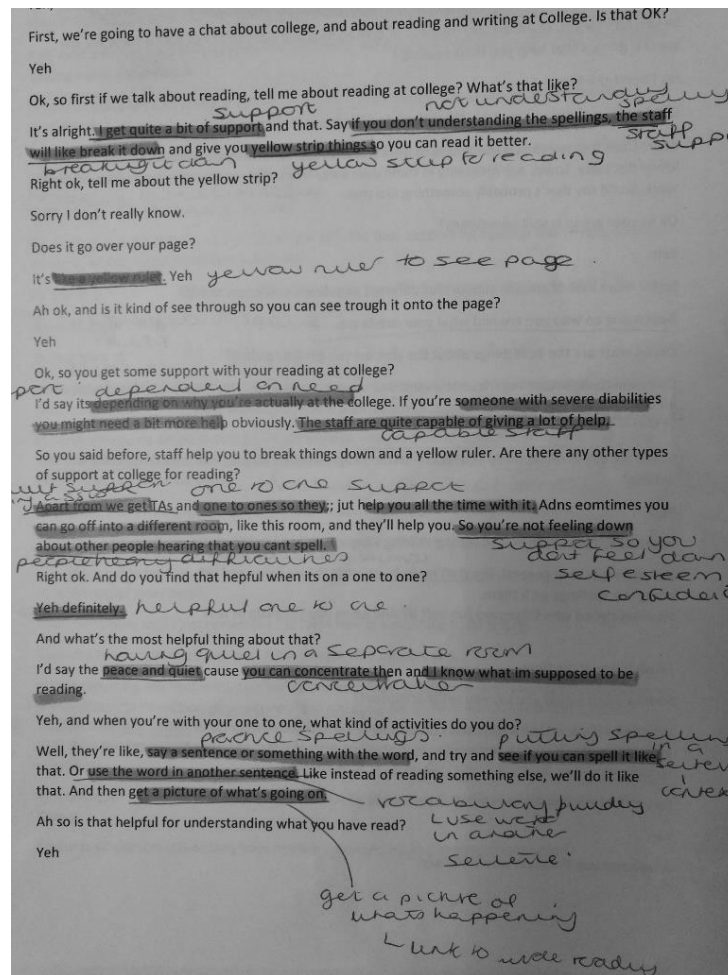 First, we're going to have a chat about college, and about reading and writing at College. Is that OK?
Yeh
Ok, so first if we talk about reading, tell me about reading at college? What's that like?
support not understanding spelling
It's alright. I get quite a bit of support and that. Say if you don't understanding the spellings, the staff
staff
will like break it down and give you yellow strip things so you can read it better.
breaking it down yellow strip for reading
Right ok, tell me about the yellow strip?
Sorry I don't really know.
Does it go over your page?
It's like a yellow ruler. Yeh yellow ruler to see page.
Ah ok, and is it kind of see through so you can see trough it onto the page?
Yeh
Ok, so you get some support with your reading at college?
dependent on need
I'd say its depending on why you're actually at the college. If you're someone with severe diabilities
you might need a bit more help obviously. The staff are quite capable of giving a lot of help.
capable staff
So you said before, staff help you to break things down and a yellow ruler. Are there any other types
of support at college for reading?
one to one support
Apart from we get TAs and one to ones so they;; jut help you all the time with it. Adns eomtimes you
can go off into a different room, like this room, and they'll help you. So you're not feeling down
about other people hearing that you cant spell.
support so you
people hearing difficulties dont feel down
Right ok. And do you find that hepful when its on a one to one?
self esteem
Yeh definitely. helpful one to one.
And what's the most helpful thing about that?
having quiet in a separate room
I'd say the peace and quiet cause you can concentrate then and I know what im supposed to be
reading.
Yeh, and when you're with your one to one, what kind of activities do you do?
practice spellings. putting spelling
Well, they're like, say a sentence or something with the word, and try and see if you can spell it like
in a
that. Or use the word in another sentence. Like instead of reading something else, we'll do it like
that. And then get a picture of what's going on.
vocabulary
Ah so is that helpful for understanding what you have read?
use word
in another
sentence.
Yeh
get a picture of
whats happening
link to